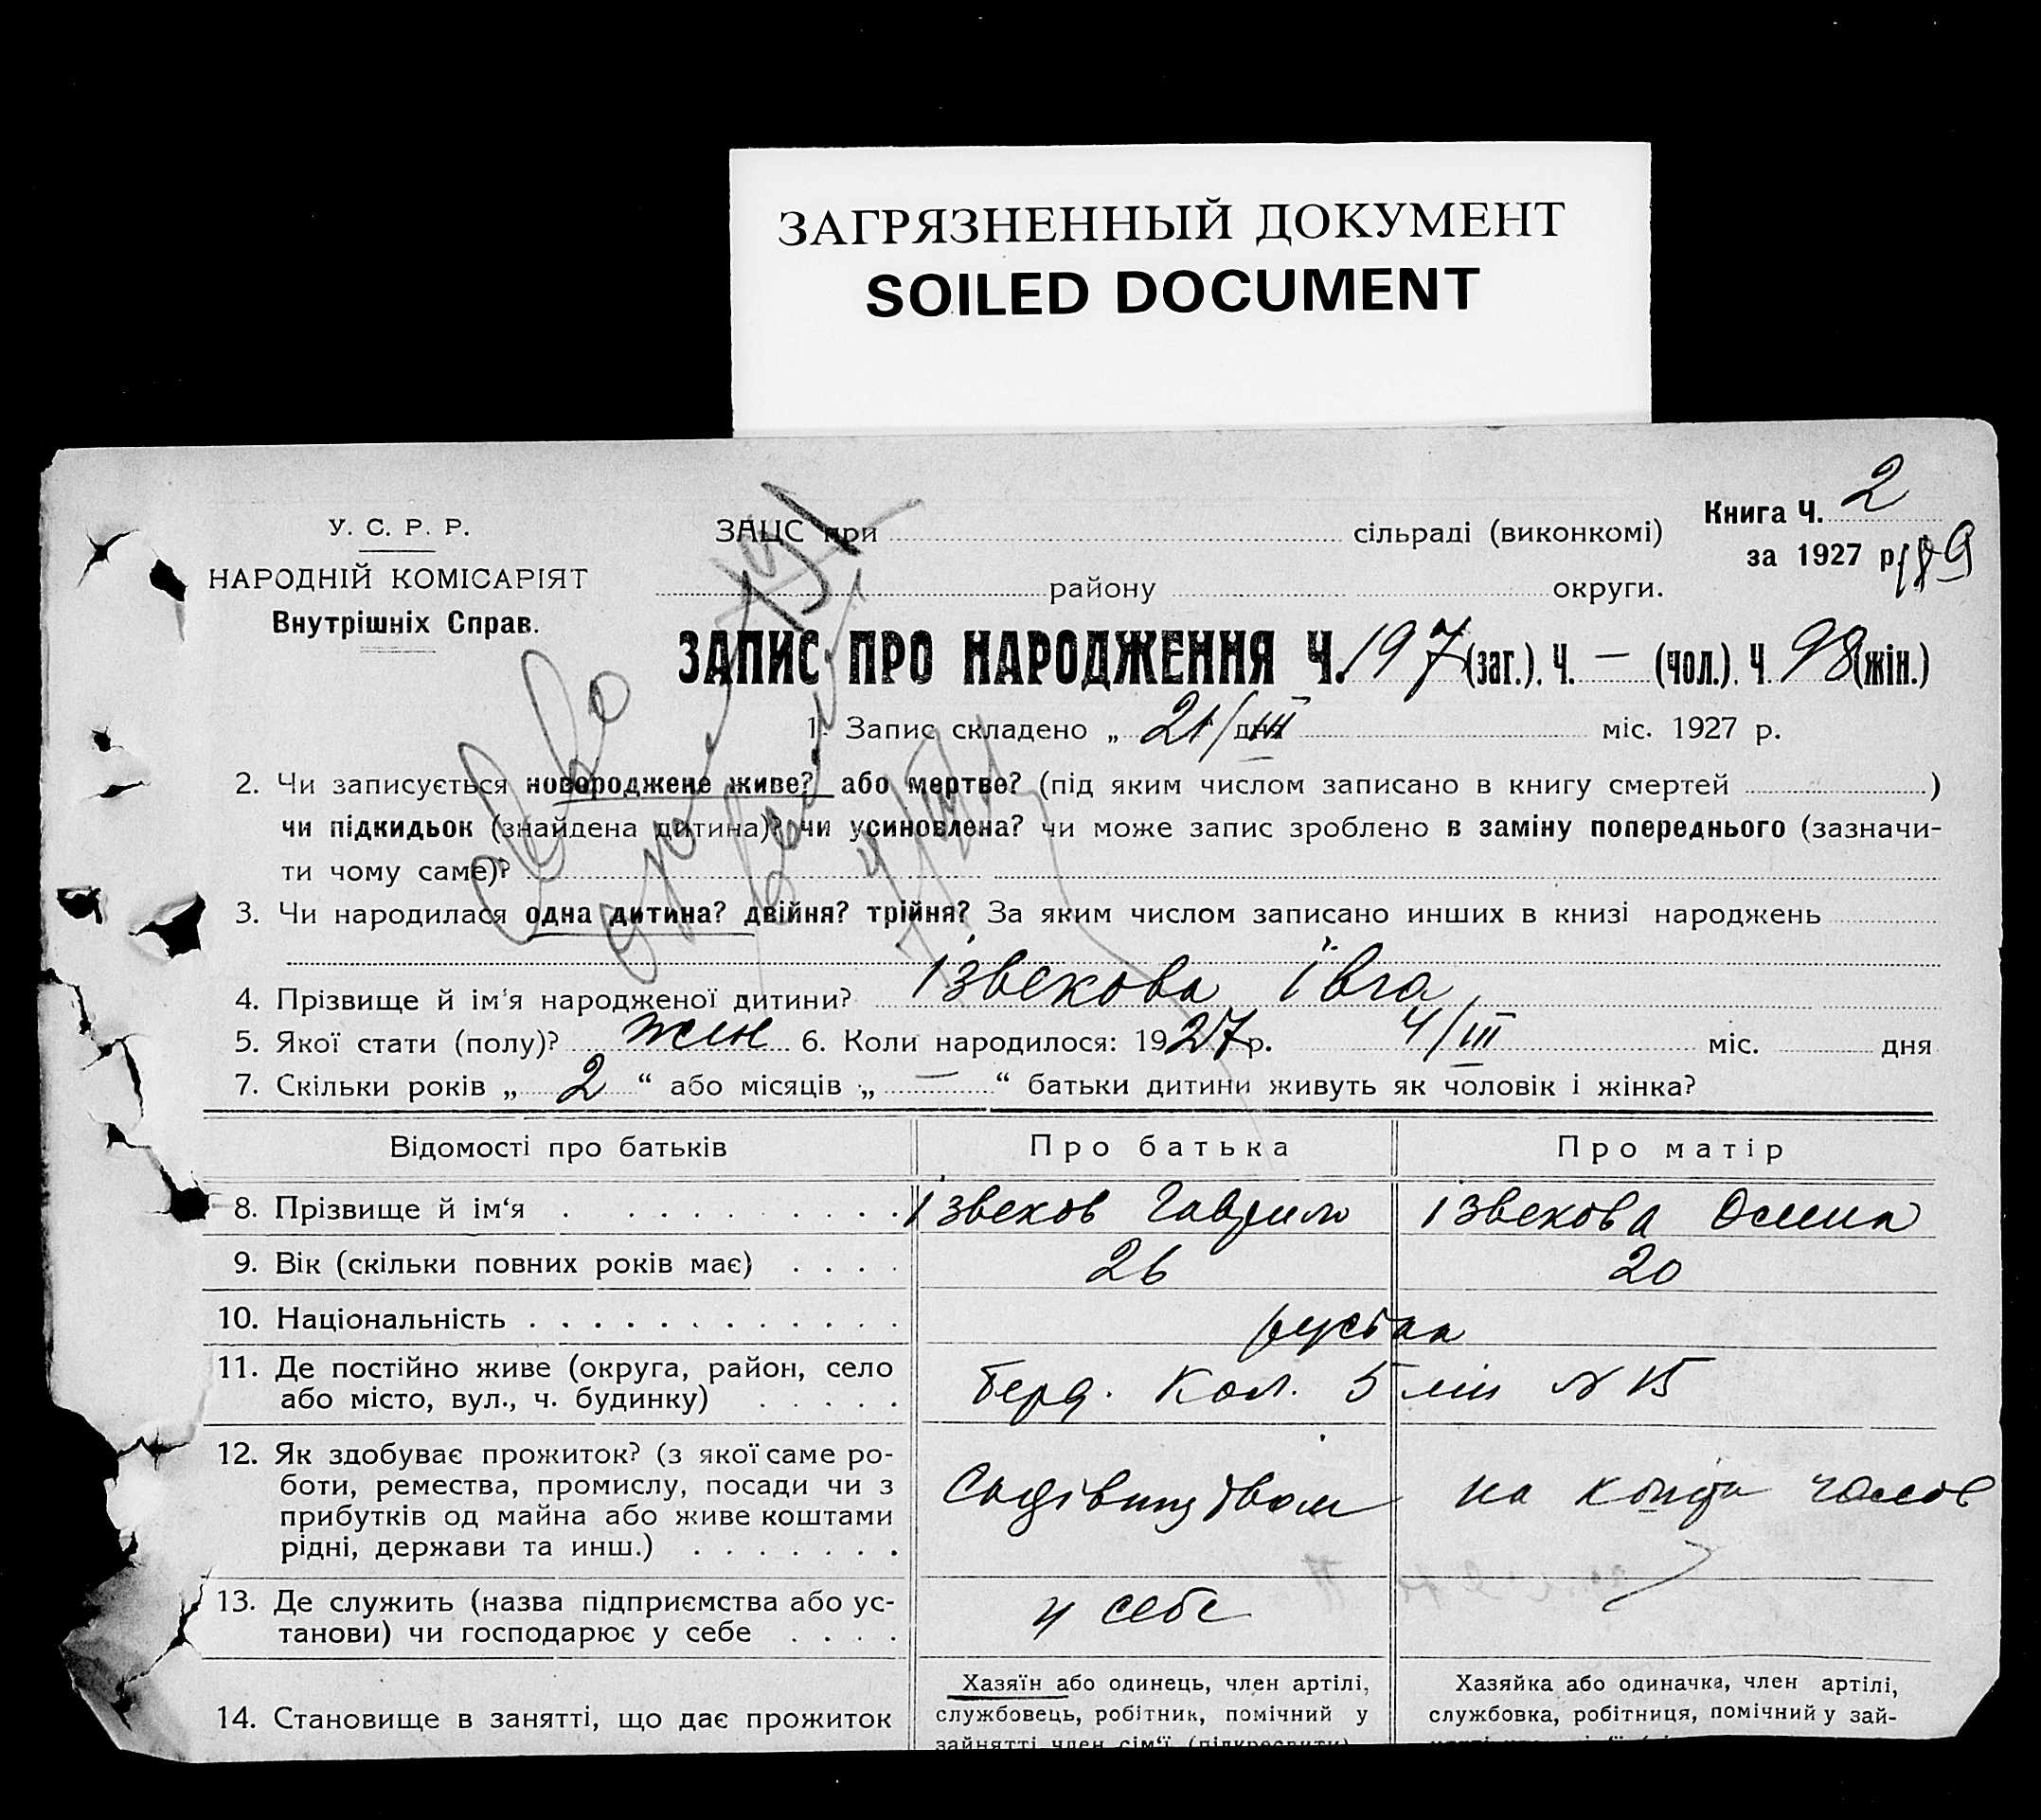 ЗАГРЯЗНЕННЫЙ ДОКУМЕНТ
SOILED DOCUMENT
У. С. Р. Р.
НАРОДНІЙ КОМІСАРІЯТ
Внутрішніх Справ.
ЗАЦС при сільраді (виконкомі)
району округи.
Книга Ч. 2
за 1927 р.
189
ЗАПИС ПРО НАРОДЖЕННЯ Ч. 197 (заг.). Ч. — (чол.). Ч. 98 (жін.)
1. Запис складено „ 21/III дня міс. 1927 р.
2. Чи записується новороджене живе? або мертве? (під яким числом записано в книгу смертей )
чи підкидьок (знайдена дитина)? чи усиновлена? чи може запис зроблено в заміну попереднього (зазначи-
ти чому саме)?
3. Чи народилася одна дитина? двійня? трійня? За яким числом записано инших в книзі народжень
4. Прізвище й ім'я народженої дитини? Ізвекова Івга
5. Якої стати (полу)? жін 6. Коли народилося: 1927 р. 4/III міс. дня
7. Скільки років „ 2 “ або місяців „ — “ батьки дитини живуть як чоловік і жінка?
Відомості про батьків Про батька Про матір
8. Прізвище й ім'я Ізвеков Гаврило Ізвекова
9. Вік (скільки повних років має) 26 20
10. Національність
11. Де постійно живе (округа, район, село
або місто, вул., ч. будинку) Берд. Кол. 5 лін № 15
12. Як здобуває прожиток? (з якої саме ро-
боти, ремества, промислу, посади чи з
прибутків од майна або живе коштами
рідні, держави та инш.) Садівництвом на
13. Де служить (назва підприємства або ус-
танови) чи господарює у себе у себе
14. Становище в занятті, що дає прожиток
Хазяїн або одинець, член артілі,
службовець, робітник, помічний у
зайнятті член сім'ї (підкреслити)
Хазяйка або одиначка, член артілі,
службовка, робітниця, помічний у зай-